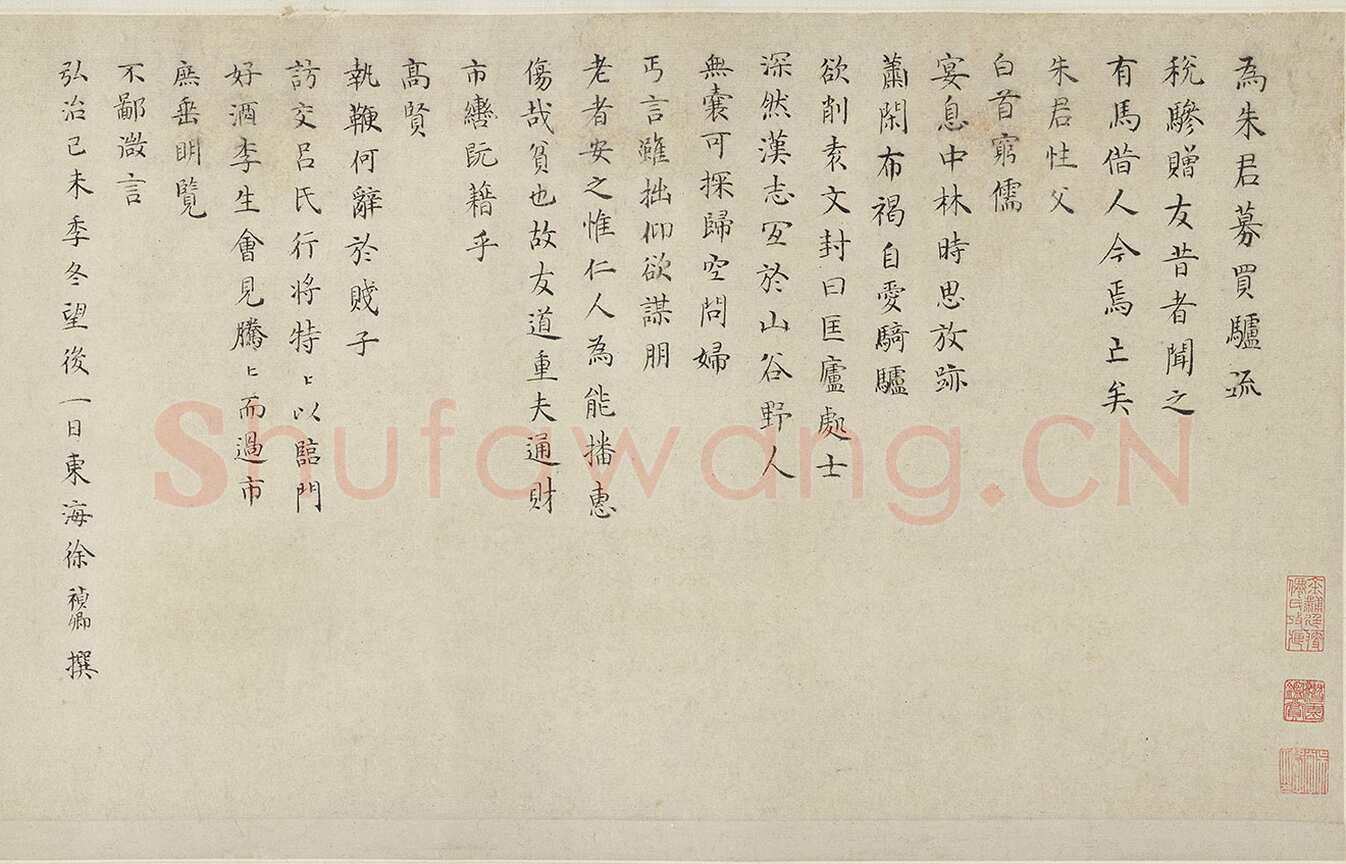 為朱君募買驢疏
稅驂贈友昔者聞之
有馬借人今焉亡矣
朱君性父
白首窮儒
宴息中林時思放跡
蕭閑布褐自愛騎驢
欲削袁文封曰匡廬處士
深然漢志宜於山谷野人
無囊可探歸空問婦
丐言雖拙仰欲謀朋
老者安之惟仁人為能播惠
傷哉貧也故友道重夫通財
市轡阮籍乎
高賢
執鞭何辭於賤子
訪交呂氏行將特〻以臨門
好酒李生會見騰〻而過市
庶垂明覽
不鄙微言
弘治己未季冬望後一日東海徐禎卿撰
Shufawang.CN